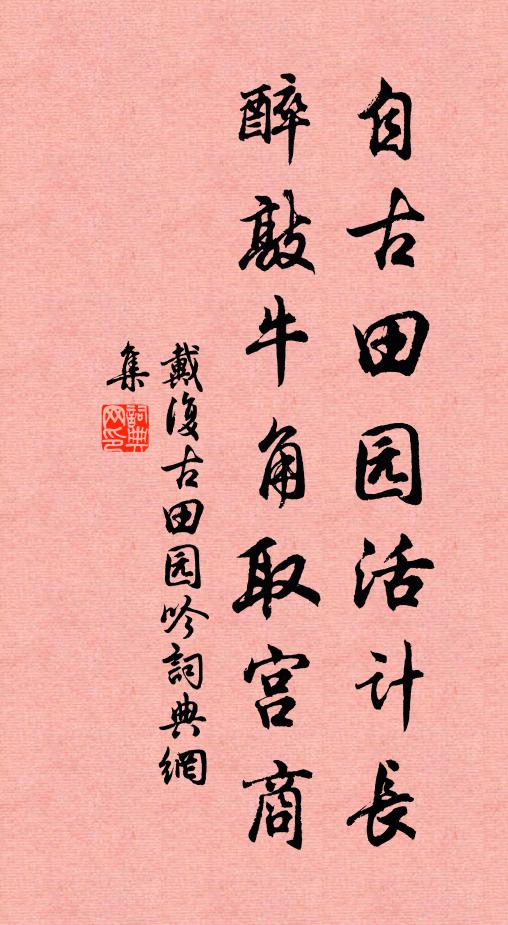 自古田园活计長
醉敲牛角取宫商
戴復古田园吟詞典網
集
詞典网印